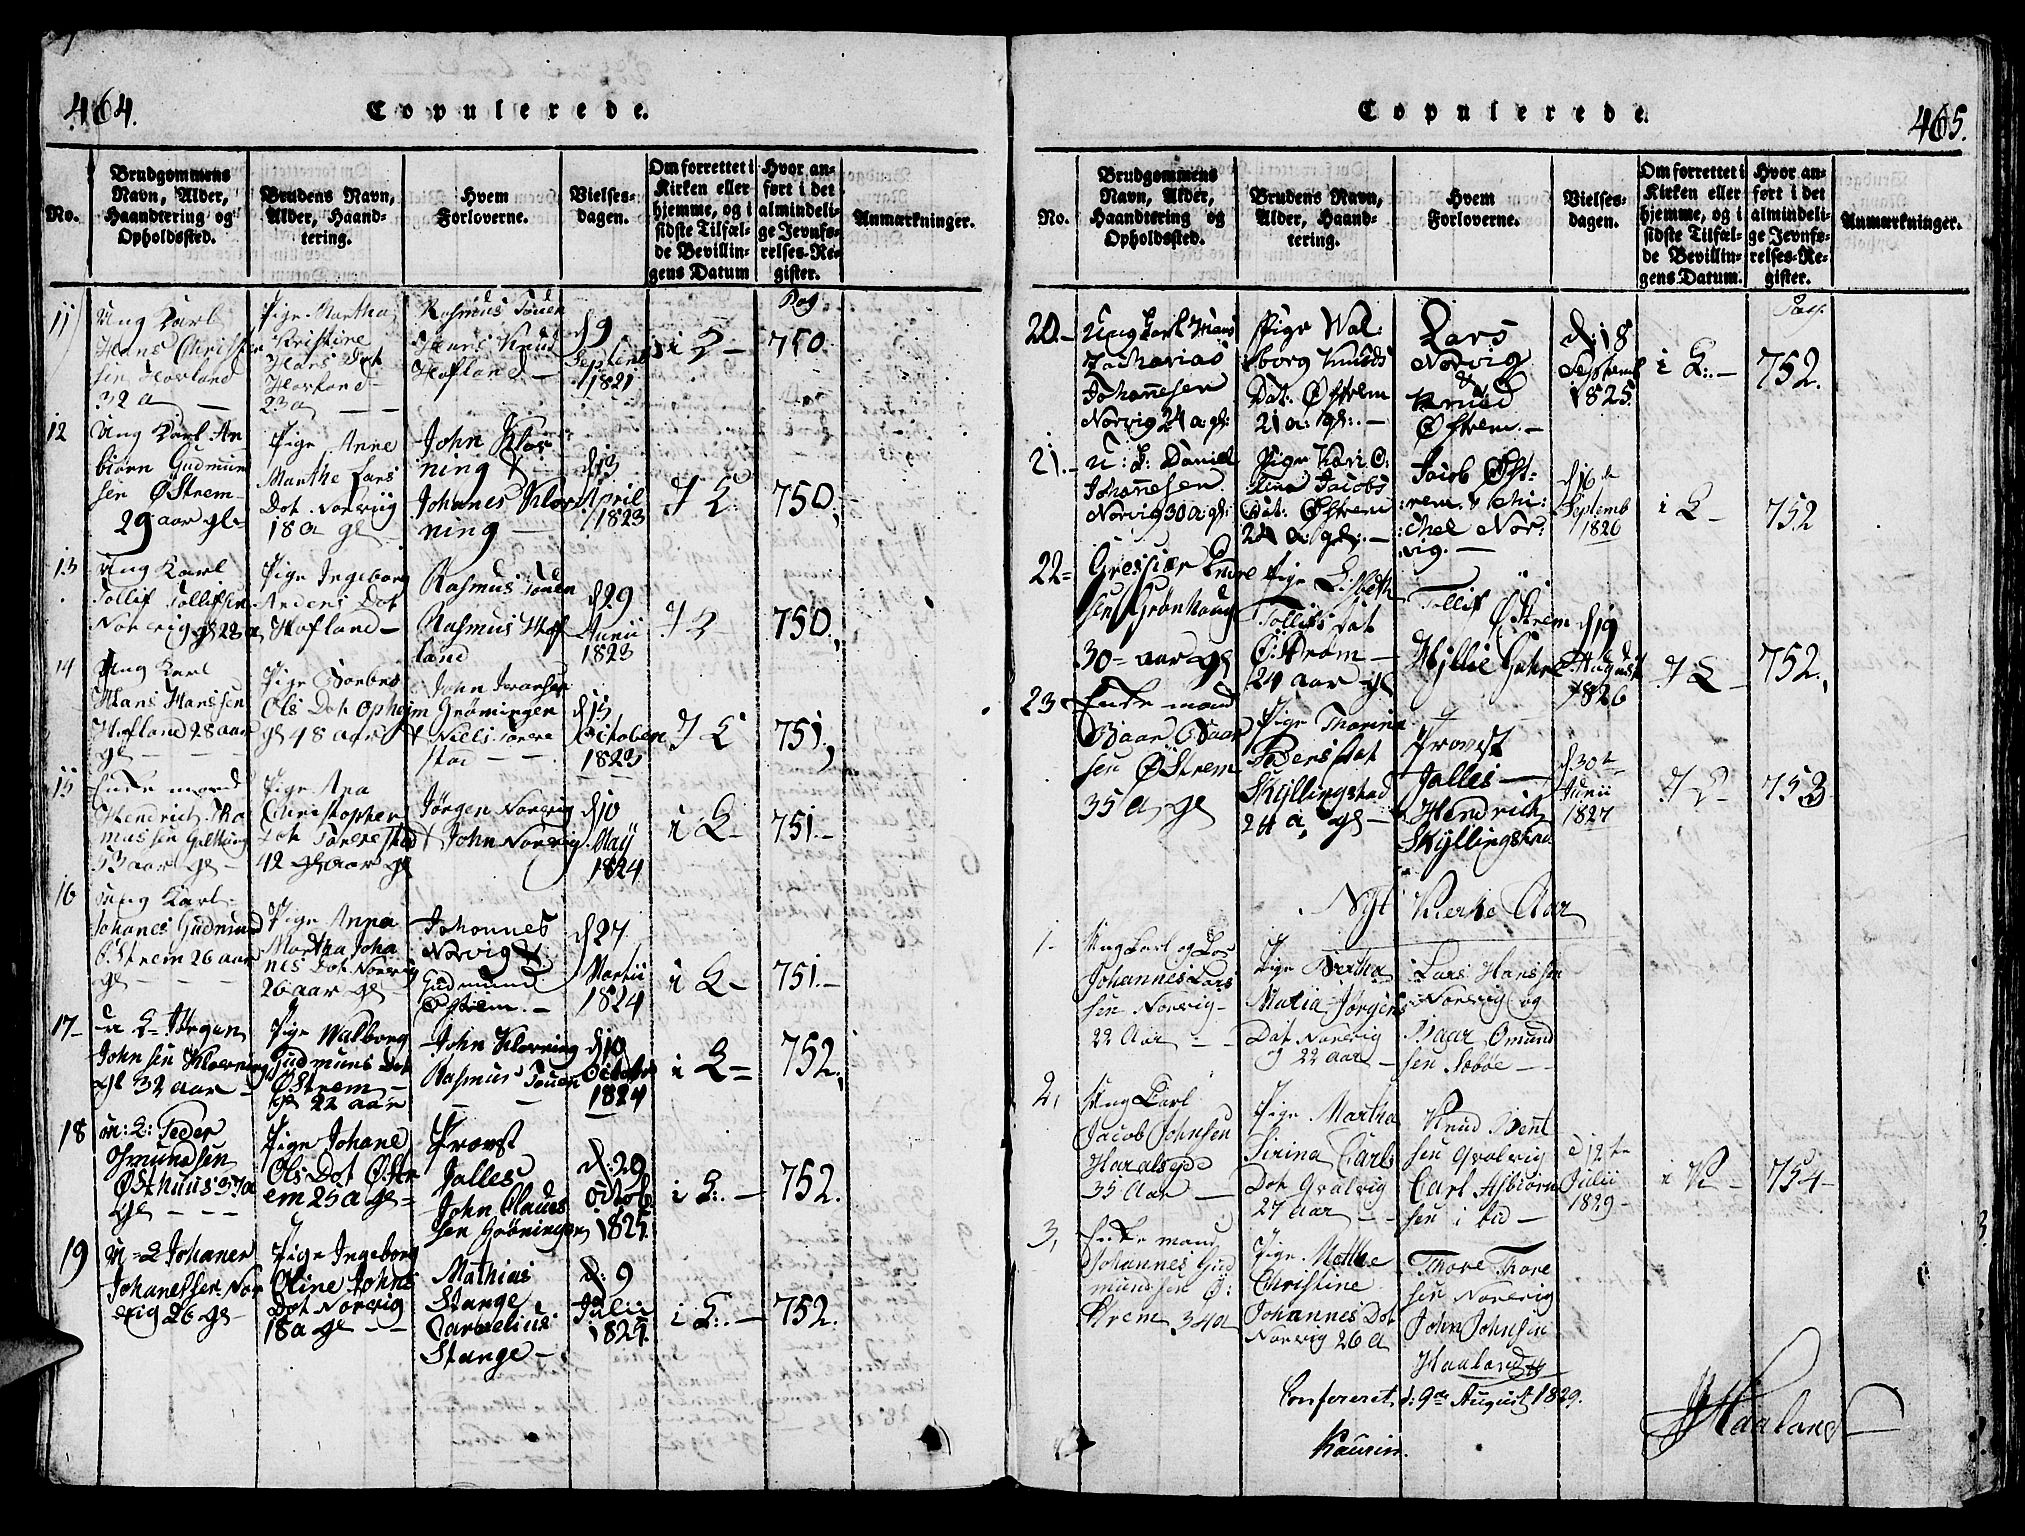 464.
Copulerede.
No.
Brudgommens
Navn, Alder,
Haandtering og
Opholdssted.
Brudens Navn,
Alder, Haand-
tering.
Hvem
Forloverne.
Vielses-
dagen.
Om forrettet i
Kirken eller
hjemme, og i
sidste Tilfæl-
de Bevillin-
gens Datum
Hvor an-
ført i det
almindeli-
ge Jevnfø-
relses-Re-
gister.
Anmærkninger.
11
Ung Karl
Hans Christen
sen Hovland
32 a
Pige Martha
Kristine
Hans Dot
Hovland
23 a
Rasmus Touen
Hans Knud
Hofland
d 9
Septemb
1821
i K
Pag
750
12
Ung Karl An
biørn Gudmun
sen Østrem
29 aar gl
Pige Anne
Marthe Lars
Dot Norviig
18 a gl
John Klov
ning &
Johannes Klov
ning
d 13
April
1823
I K
750
13
Ung Karl
Tollif Tollifsen
Norviig gl 28 a
Pige Ingeborg
Anders Dot
Hofland
Rasmus Touen
Rasmus Hof
land
d 29
Junii
1823
I K
750
14
Ung Karl
Hans Hanssen
Hofland 28 aar
gl
Pige
Ols Dot Opheim
gl 48 aar
John Ivarsen
Grøningen
& Niels Torre
stad
d 13
Octobere
1823
I K
751
15
Enke mand
Hendrich Tho
massen
53 aar gl
Pige Ana
Christopher
Dot Torrestad
42 aar gl
Jørgen Norvig
& John Norvig
d 10
Maij
1824
i K
751
16
Ung Karl
Johanes Gudmund
Østrem 26 aar
gl
Pige Anna
Martha Joha
nes Dot Norvig
26 aar gl
Johannes
Norvig &
Gudmund
Østrem
d 27
Martii
1824
i K
751
17
u K Jørgen
Johnsen Klovning
gl 32 aar
Pige Walborg
Gudmuns Dot
Østrem
gl 22 aar
John Klovning
Rasmus Touen
d 10
October
1824
i K
752
18
u: K: Peder
Osmundsen
Østhuus 37 a
gl
Pige Johane
Ols Dot Østr
em 25 a gl
Provst
Jalles
John Claus
sen Grøningen
d: 29
Octob
1825
i K:
752.
19
u = K Johanes
Johanessen Nor
vig 26 gl
Pige Ingeborg
Oline Johns
Dot Norvig
18 a gl
Mathias
Stange
Cornelius
Stange
d: 9
Julii
1825
i K:
752.
465.
Copulerede.
No.
Brudgommens
Navn, Alder,
Haandtering og
Opholdssted.
Brudens Navn,
Alder, Haand-
tering.
Hvem
Forloverne.
Vielses-
dagen.
Om forrettet i
Kirken eller
hjemme, og i
sidste Tilfæl-
de Bevillin-
gens Datum.
Hvor an-
ført i det
almindeli-
ge Jevnfø-
relses-Re-
gister.
Anmærkninger.
20
Ung Karl Mans
Zacharias
Johannesen
Norvig 24 a: gl:
Pige Wal:
borg Knuds
Dat: Østrem
21 a: gl:
Lars
Norvig
Knud
Østrem
d: 18
Septemb
1825.
i K:
Pag.
752.
21
U: K: Daniel
Johannesen
Norvig 30 a: gl:
Pige Kari O:
lena Jacobs
Dat: Østrem
21 a: gl:
Jacob Øst-
rem & Mi:
chel Nor:
vig.
d 16
Septemb
1826
i K
752
22
30 aar gl
Pige Elsbeth
Tollifs Dat
Østrem
24 aar gl
Tollif
Østrem
d 19
August
1826
I K
752.
23
Enke mand
Baar Baar
sen Østrem
35 a gl
Pige Thorina
Peders Dat
Skyllingstad
24 a, gl
Provst
Jalles
Hendrich
Skyllingstad
d. 30te
Junii
1827
I K
753
Nyt Kierke Aar
1
Ung Karl og Los
Johannes Lars
sen Norvig
22 Aar
Pige Bertha
Maria Jørgens
Dat Norvig
22 aar
Lars Hanssen
Norvig og
Baar Omund
sen Søbøe
2,
Ung Karl
Jacob Johnsen
Haralseide
35 Aar
Pige Martha
Sirina Carls
Dot Qvalvig
27 aar
Knud Bent
sen Qvalvig
Carl Asbiørn
sen i bid
d 12te
Julii
1829
i K
754
3,
Enke mand
Johannes Gud
mundsen Ø:
strem 34 a
Pige Methe
Christine
Johannes Dot
Norvig 26 a
Thore Thore
sen Norvig
John Johnsen
Haaland
Confereret d: 9de August 1829.
Kaurin.
Haaland